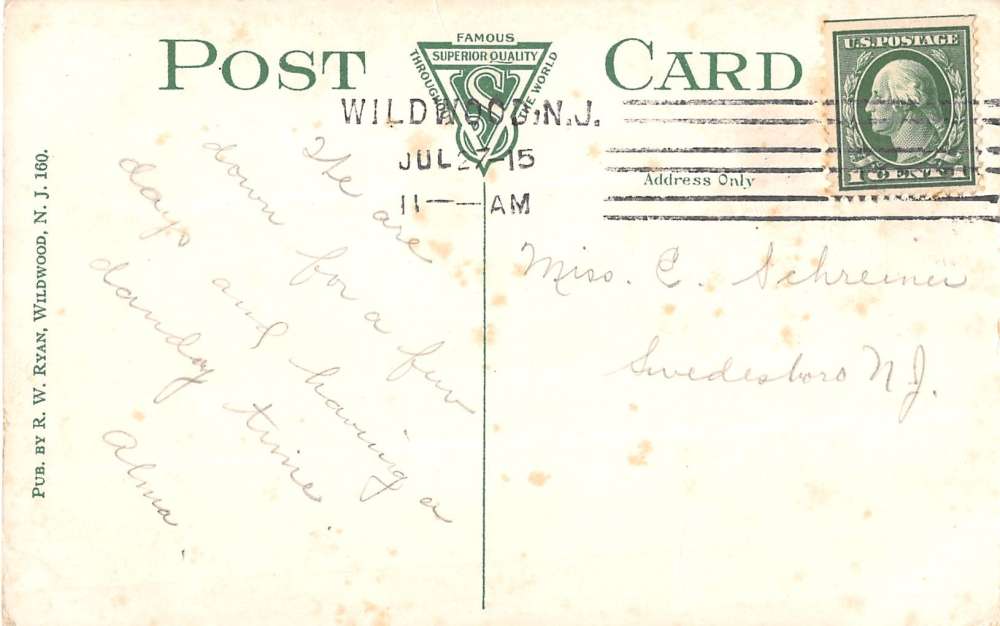 POST CARD
FAMOUS
SUPERIOR QUALITY
THROUGHOUT THE WORLD
U.S. POSTAGE
1 CENT 1
WILDWOOD, N.J.
JUL 27-15
11 — AM
Address Only
We are
down for a few
days and having a
dandy time.
Alma.
Miss. C. Schreiner
Swedesboro N J.
PUB. BY R. W. RYAN, WILDWOOD, N. J. 160.